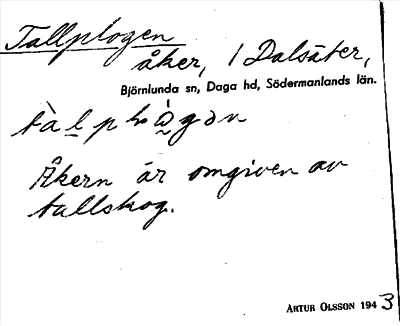 Tallplogen
åker, 1 Dalsäter,
Björnlunda sn, Daga hd, Södermanlands län.
Åkern är omgiven av
tallskog.
ARTUR OLSSON 1943